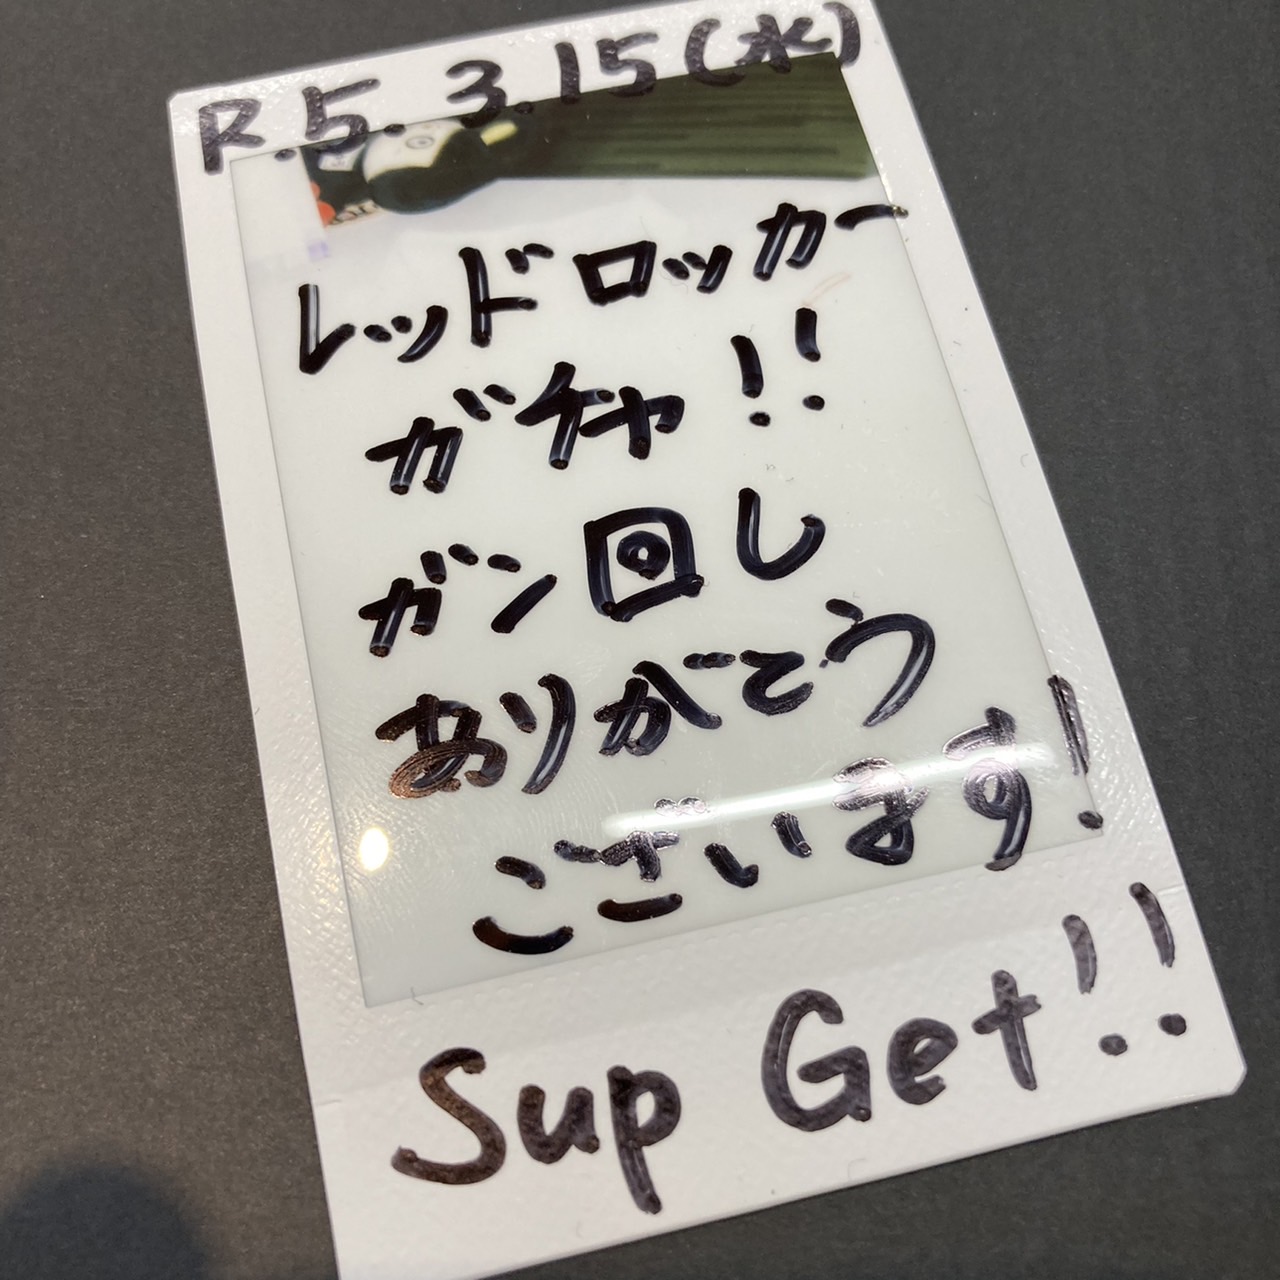 R.5.3.15(水)
レッドロッカー
ガチャ!!
ガン回し
ありがとう
ございます!
Sup Get!!